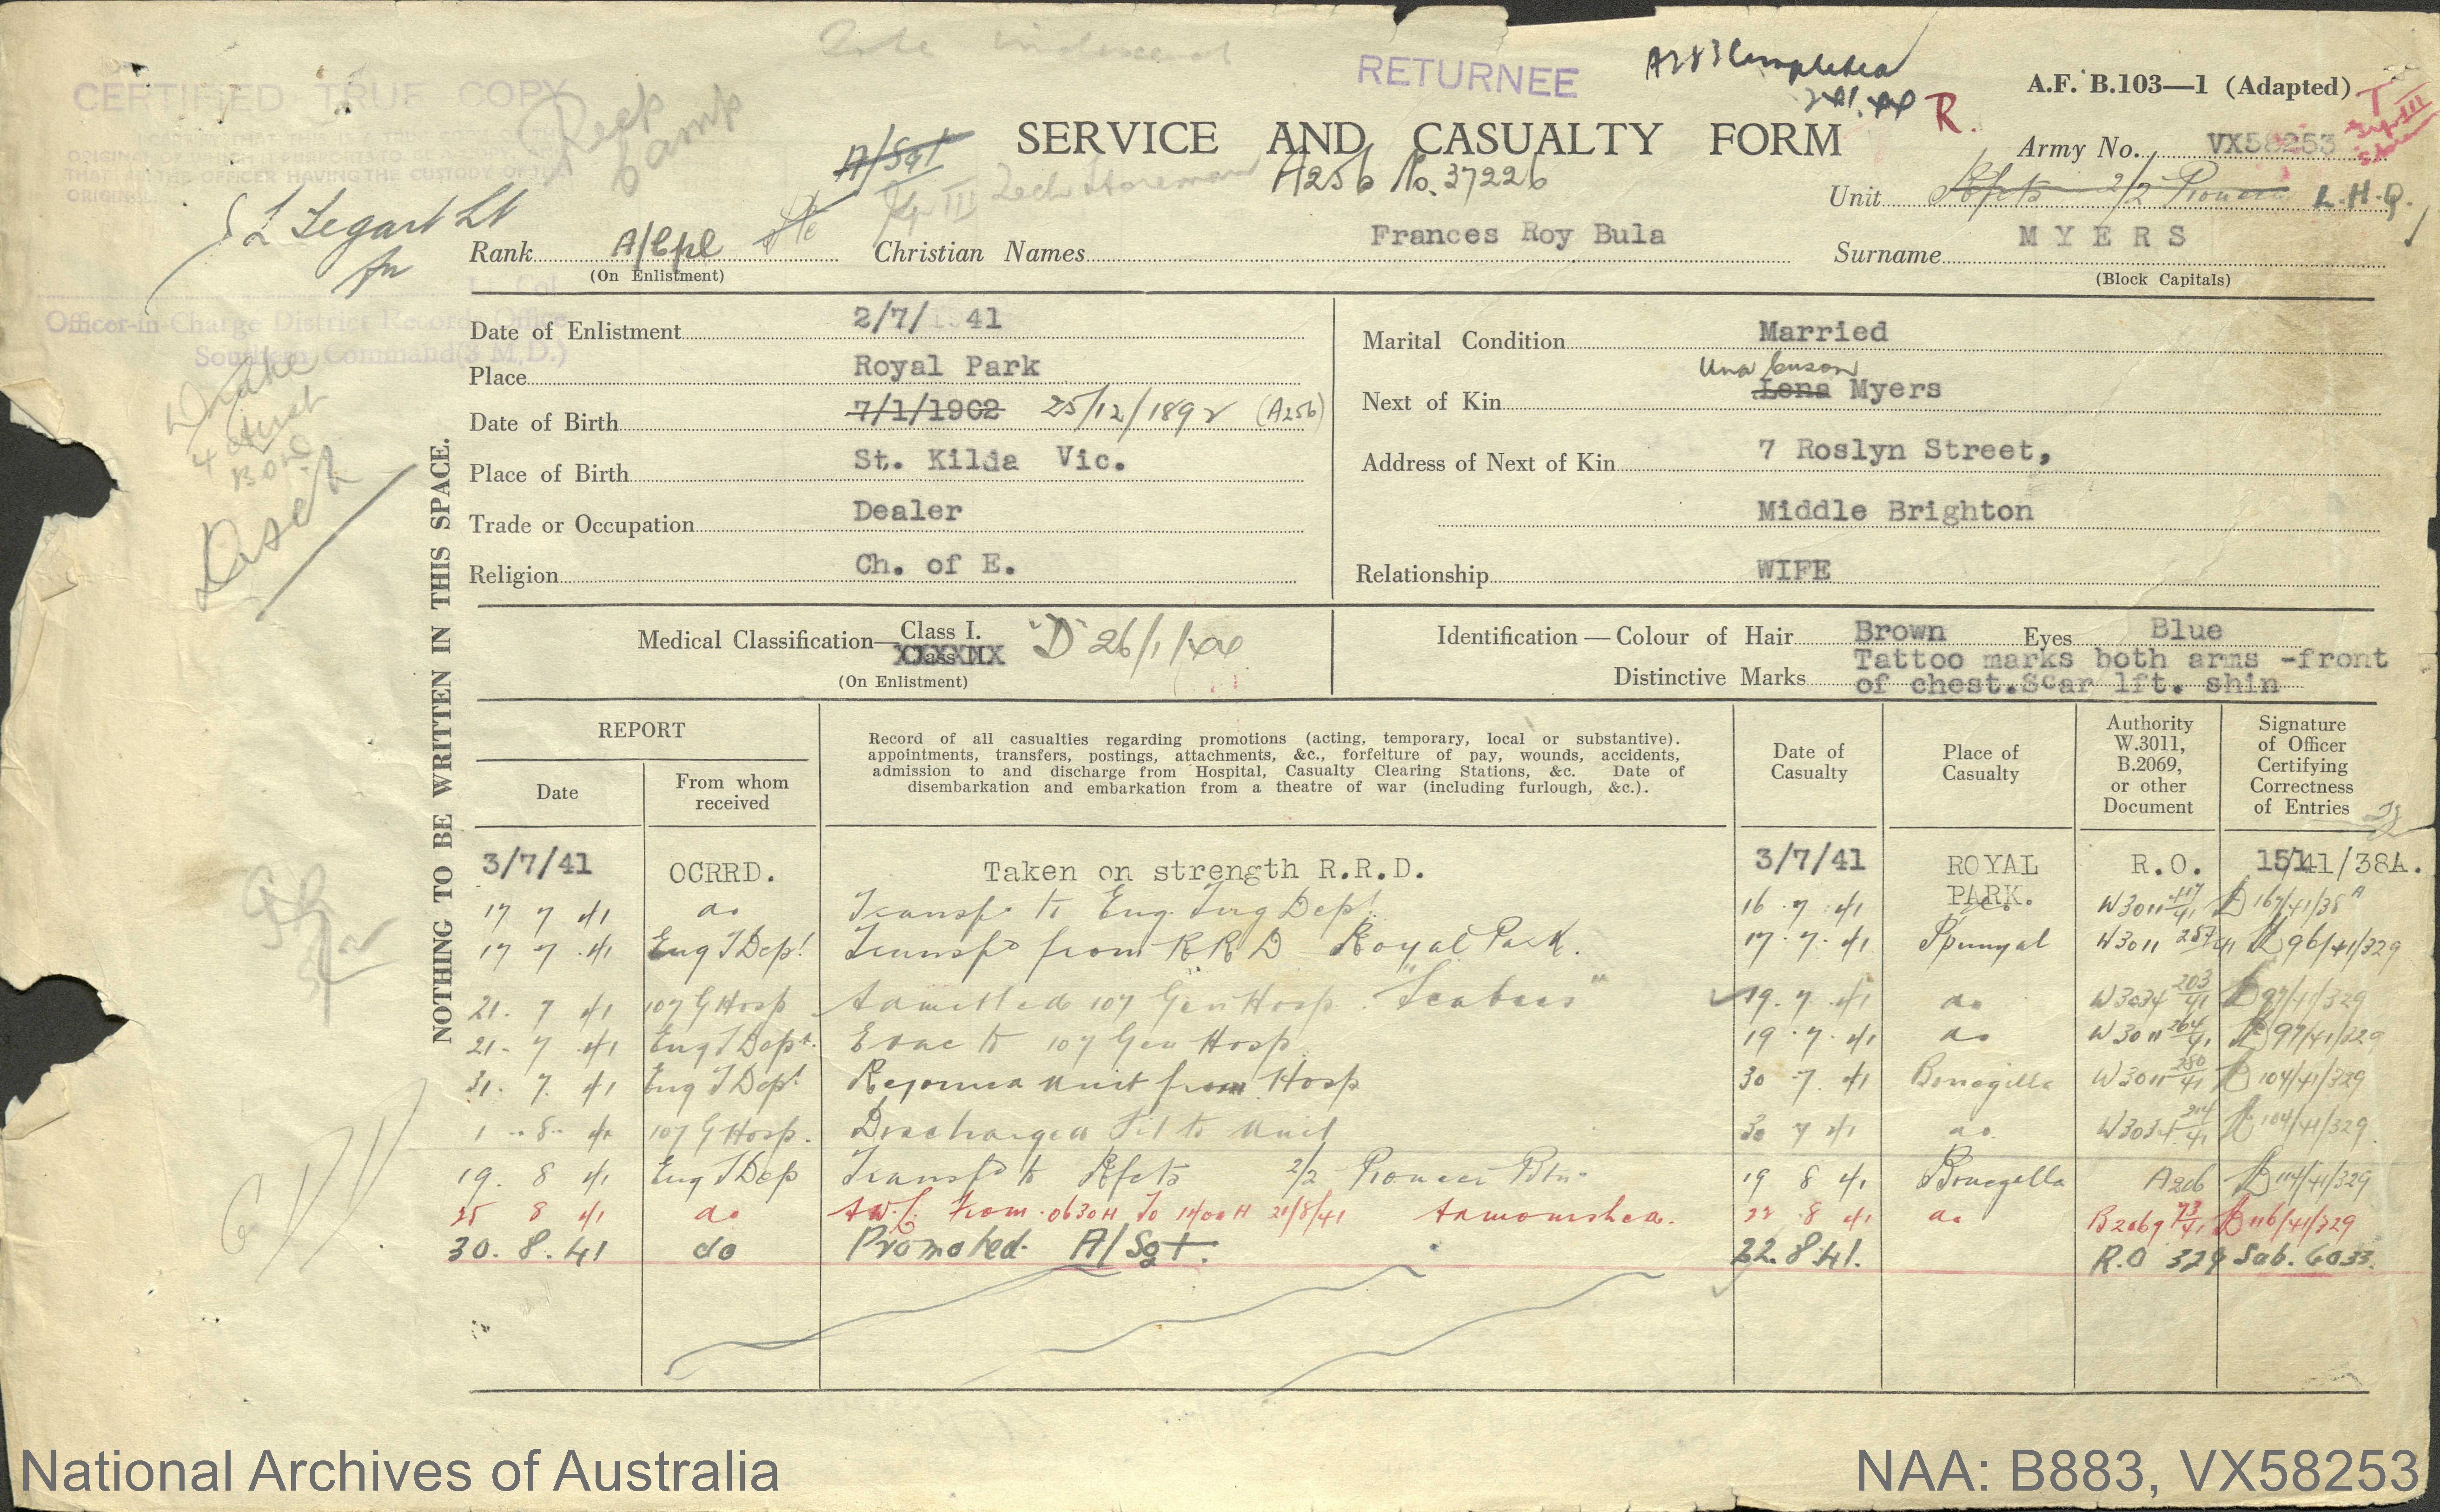 CERTIFIED TRUE COPY
RETURNEE
A.F. B.103—1 (Adapted)
R.
SERVICE AND CASUALTY FORM
Army No. VX58253
A/Sgt
A256 No. 37226
Unit Rfcts 2/2 Pioneer L.H.Q.
Rank A/Cpl Pte
(On Enlistment)
Christian Names Frances Roy Bula
Surname MYERS
(Block Capitals)
Officer-in Charge District Records Office
Southern Command (3 M.D.)
NOTHING TO BE WRITTEN IN THIS SPACE.
Date of Enlistment 2/7/1941
Place Royal Park
Date of Birth 7/1/1902 25/12/1892 (A256)
Place of Birth St. Kilda Vic.
Trade or Occupation Dealer
Religion Ch. of E.
Marital Condition Married
Una
Next of Kin Lena Myers
Address of Next of Kin 7 Roslyn Street,
Middle Brighton
Relationship WIFE
Medical Classification— Class I. "D" 26/1/44
Class II
(On Enlistment)
Identification—Colour of Hair Brown Eyes Blue
Distinctive Marks Tattoo marks both arms -front
of chest.Scar lft. shin
REPORT
Date
From whom received
Record of all casualties regarding promotions (acting, temporary, local or substantive).
appointments, transfers, postings, attachments, &c., forfeiture of pay, wounds, accidents,
admission to and discharge from Hospital, Casualty Clearing Stations, &c. Date of
disembarkation and embarkation from a theatre of war (including furlough, &c.).
Date of Casualty
Place of Casualty
Authority W.3011, B.2069, or other Document
Signature of Officer Certifying Correctness of Entries
3/7/41 OCRRD. Taken on strength R.R.D. 3/7/41 ROYAL PARK. R.O. 151/41/38A.
17 7 41 do Transfd to Eng. Trg Dept. 16.7.41 do W3011 117/41 167/41/38A
17 7 41 Eng T Dept Transfd from RRD Royal Park. 17.7.41 W3011 257/41 96/41/329
21. 7 41 107 G Hosp Admitted 107 Gen Hosp. "Scabies" 19.7.41 do W3034 203/41 97/41/329
21. 7 41 Eng T Dept. Evac to 107 Gen Hosp. 19.7.41 do W3011 264/41 97/41/329
31. 7. 41 Eng T Dept Rejoined unit from Hosp 30 7. 41 Bonegilla W3011 280/41 104/41/329
1.8.41 107 G Hosp. Discharged Fit to Unit 30 7 41 do W3034 214/41 104/41/329
19. 8 41 Eng T Dep Transfd to Rfcts 2/2 Pioneer Btn. 19 8 41 Bonegilla A206 114/41/329
25 8 41 do A.W.L. From 0630H To 1400H 21/8/41 Admonished. 22 8 41 do B2069 73/41 116/41/329
30.8.41 do Promoted A/Sgt. 22.8.41. R.O 329 Sub. 6033.
National Archives of Australia
NAA: B883, VX58253